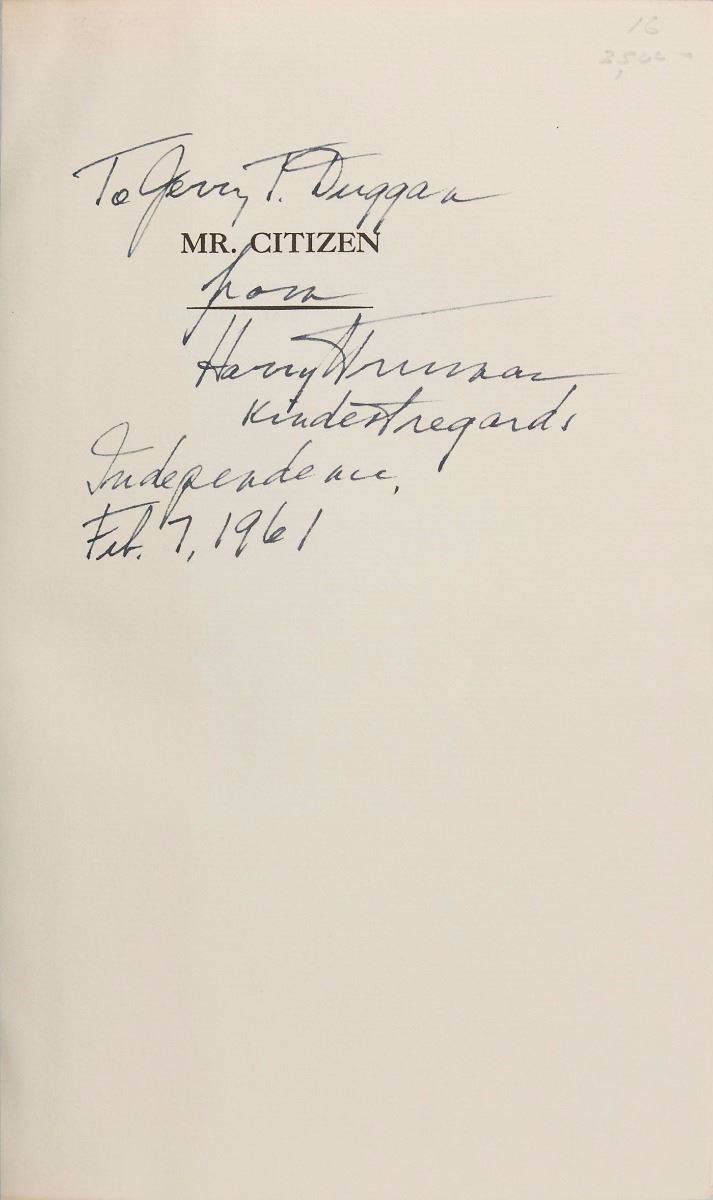 16
2500-
To Jerry P. Duggan
MR. CITIZEN
from
Harry Truman
Kindest regards
Independence,
Feb. 7, 1961